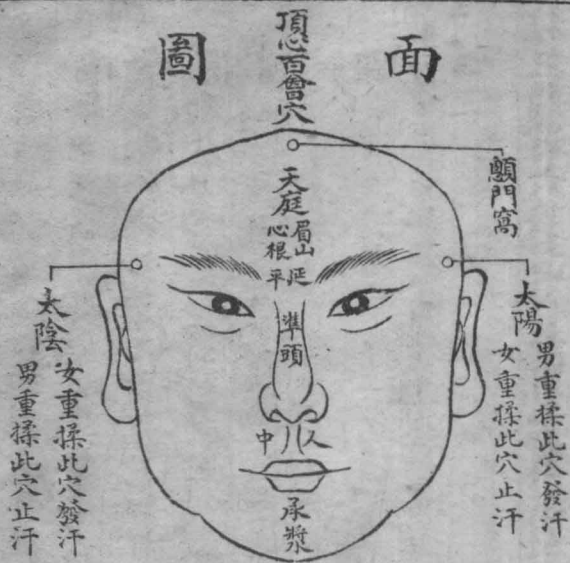 面圖
頂心百會穴
顖門窩
天庭
眉心
山根
延平
準頭
人中
承漿
太陽
男重揉此穴發汗
女重揉此穴止汗
太陰
女重揉此穴發汗
男重揉此穴止汗